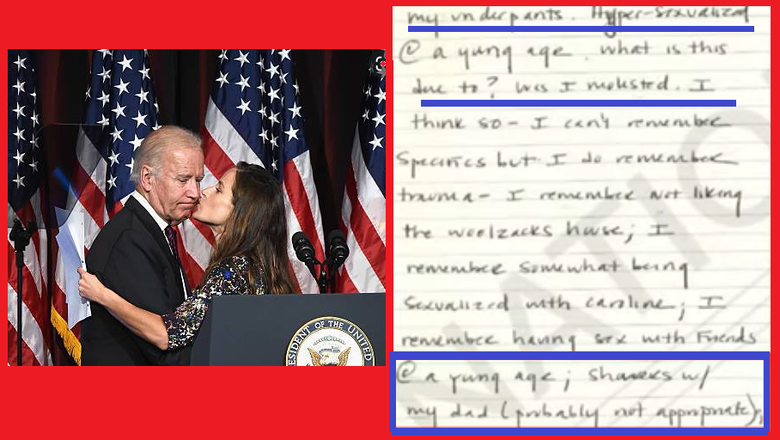 OF THE UNITED
my underpants. Hyper-sexualized
@ a yung age. what is this
due to? Was I molested. I
think so - I can't remember
specifics but I do remember
trauma - I remember not liking
the woolzacks house; I
remember somewhat being
sexualized with caroline; I
remember having sex with friends
@ a yung age; showers w/
my dad (probably not appropriate),